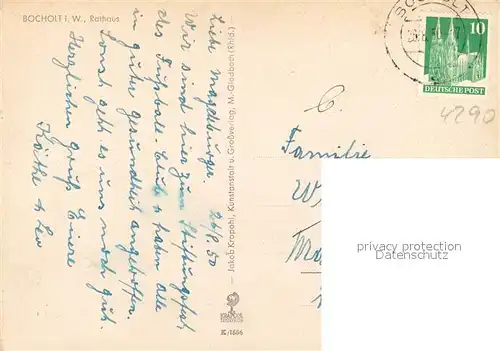 BOCHOLT I. W., Rathaus
Liebe Magdeburger. 26/8. 50
Wir sind hier zum Stiftungsfest
des Fußball-Club & haben alle
in guter Gesundheit angetroffen.
Sonst geht es uns noch gut.
Herzlichen Gruß Eure
Käthe & Leo
— Jakob Krapohl, Kunstanstalt u. Großverlag, M.-Gladbach (Rhld.) —
K/1666
BOCHOLT
10
DEUTSCHE POST
4290
C.
Familie
privacy protection
Datenschutz